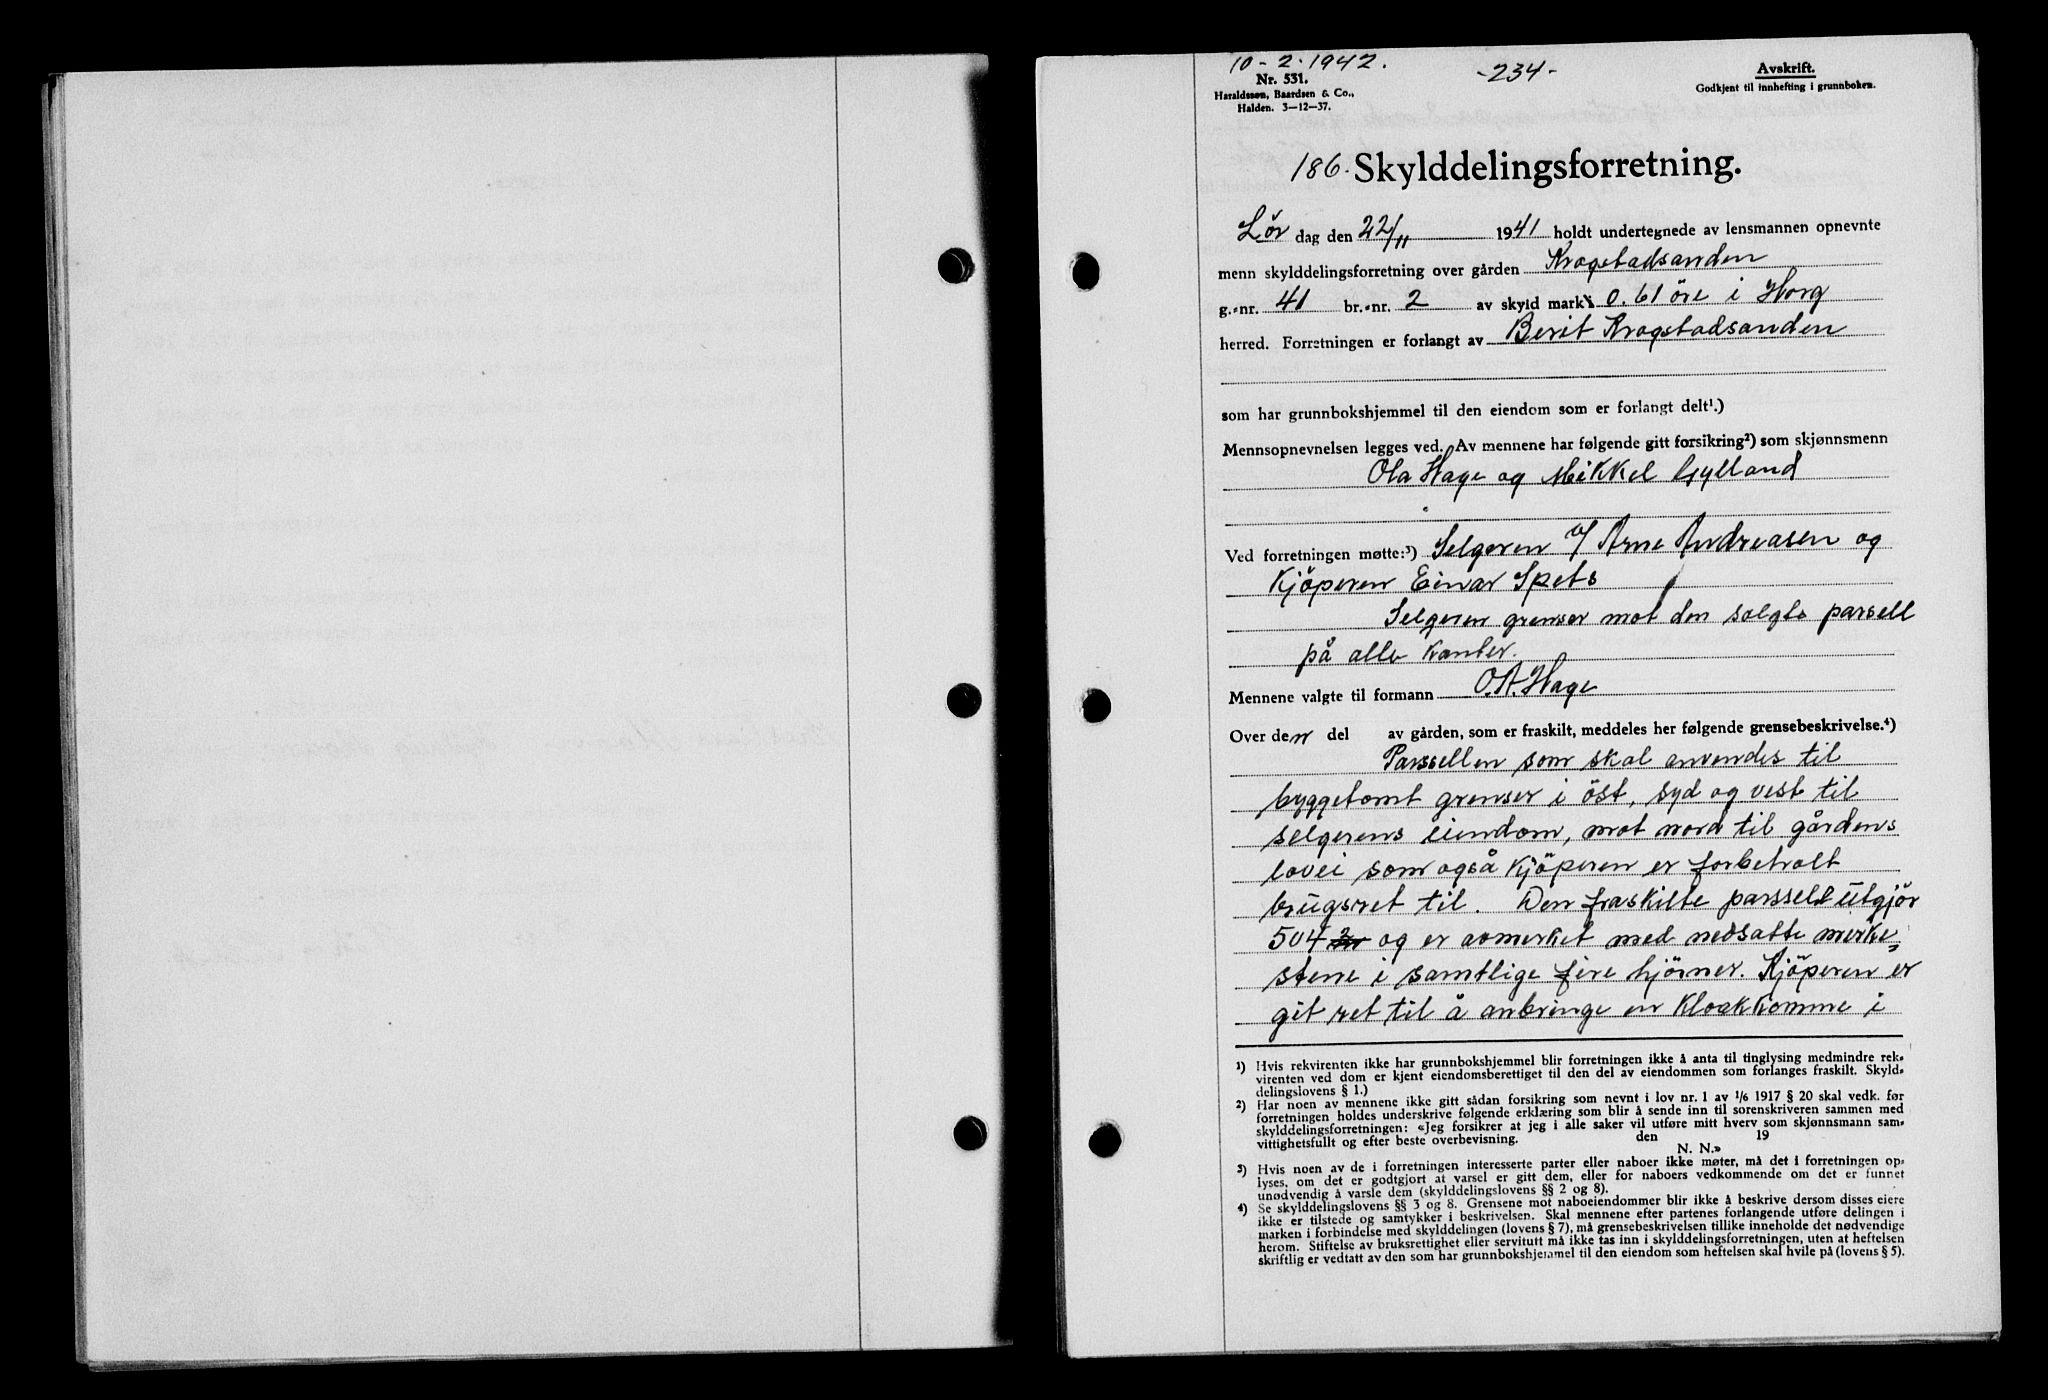 10-2-1942.
-234-
Nr. 531.
Haraldssøn, Baardsen & Co.,
Halden. 3—12—37.
Avskrift.
Godkjent til innhefting i grunnboken.
186. Skylddelingsforretning.
Lör dag den 22/11 1941 holdt undertegnede av lensmannen opnevnte
menn skylddelingsforretning over gården Krogstadsanden
g.-nr. 41 br.-nr. 2 av skyld mark 0.61 öre i Horg
herred. Forretningen er forlangt av Berit Krogstadsanden
som har grunnbokshjemmel til den eiendom som er forlangt delt¹.)
Mennsopnevnelsen legges ved. Av mennene har følgende gitt forsikring²) som skjønnsmenn
Ola Hage og Mikkel Gylland
Ved forretningen møtte:³) Selgeren v/ Arne Andreasen og
Kjöperen Einar Spets
Selgeren grenser mot den solgte parsell
på alle kanter.
Mennene valgte til formann O.A. Hage
Over den del av gården, som er fraskilt, meddeles her følgende grensebeskrivelse.⁴)
Parssellen som skal anvendes til
byggetomt grenser i öst, syd og vest til
selgerens eiendom, mot nord til gårdens
lovei som også kjöperen er forbeholt
brugsret til. Den fraskilte parssell utgjör
504 og er avmerket med nedsatte merke=
stene i samtlige fire hjörner. Kjöperen er
git ret til å anbringe en kloakkomme i
¹) Hvis rekvirenten ikke har grunnbokshjemmel blir forretningen ikke å anta til tinglysing medmindre rek-
virenten ved dom er kjent eiendomsberettiget til den del av eiendommen som forlanges fraskilt. Skyld-
delingslovens § 1.)
²) Har noen av mennene ikke gitt sådan forsikring som nevnt i lov nr. 1 av 1/6 1917 § 20 skal vedk. før
forretningen holdes underskrive følgende erklæring som blir å sende inn til sorenskriveren sammen med
skylddelingsforretningen: «Jeg forsikrer at jeg i alle saker vil utføre mitt hverv som skjønnsmann sam-
vittighetsfullt og efter beste overbevisning. den 19
N. N.»
³) Hvis noen av de i forretningen interesserte parter eller naboer ikke møter, må det i forretningen op-
lyses, om det er godtgjort at varsel er gitt dem, eller for naboers vedkommende om det er funnet
unødvendig å varsle dem (skylddelingslovens §§ 2 og 8).
⁴) Se skylddelingslovens §§ 3 og 8. Grensene mot naboeiendommer blir ikke å beskrive dersom disses eiere
ikke er tilstede og samtykker i beskrivelsen. Skal mennene efter partenes forlangende utføre delingen i
marken i forbindelse med skylddelingen (lovens § 7), må grensebeskrivelsen tillike inneholde det nødvendige
herom. Stiftelse av bruksrettighet eller servitutt må ikke tas inn i skylddelingsforretningen, uten at heftelsen
skriftlig er vedtatt av den som har grunnbokshjemmel til den eiendom som heftelsen skal hvile på (lovens § 5).